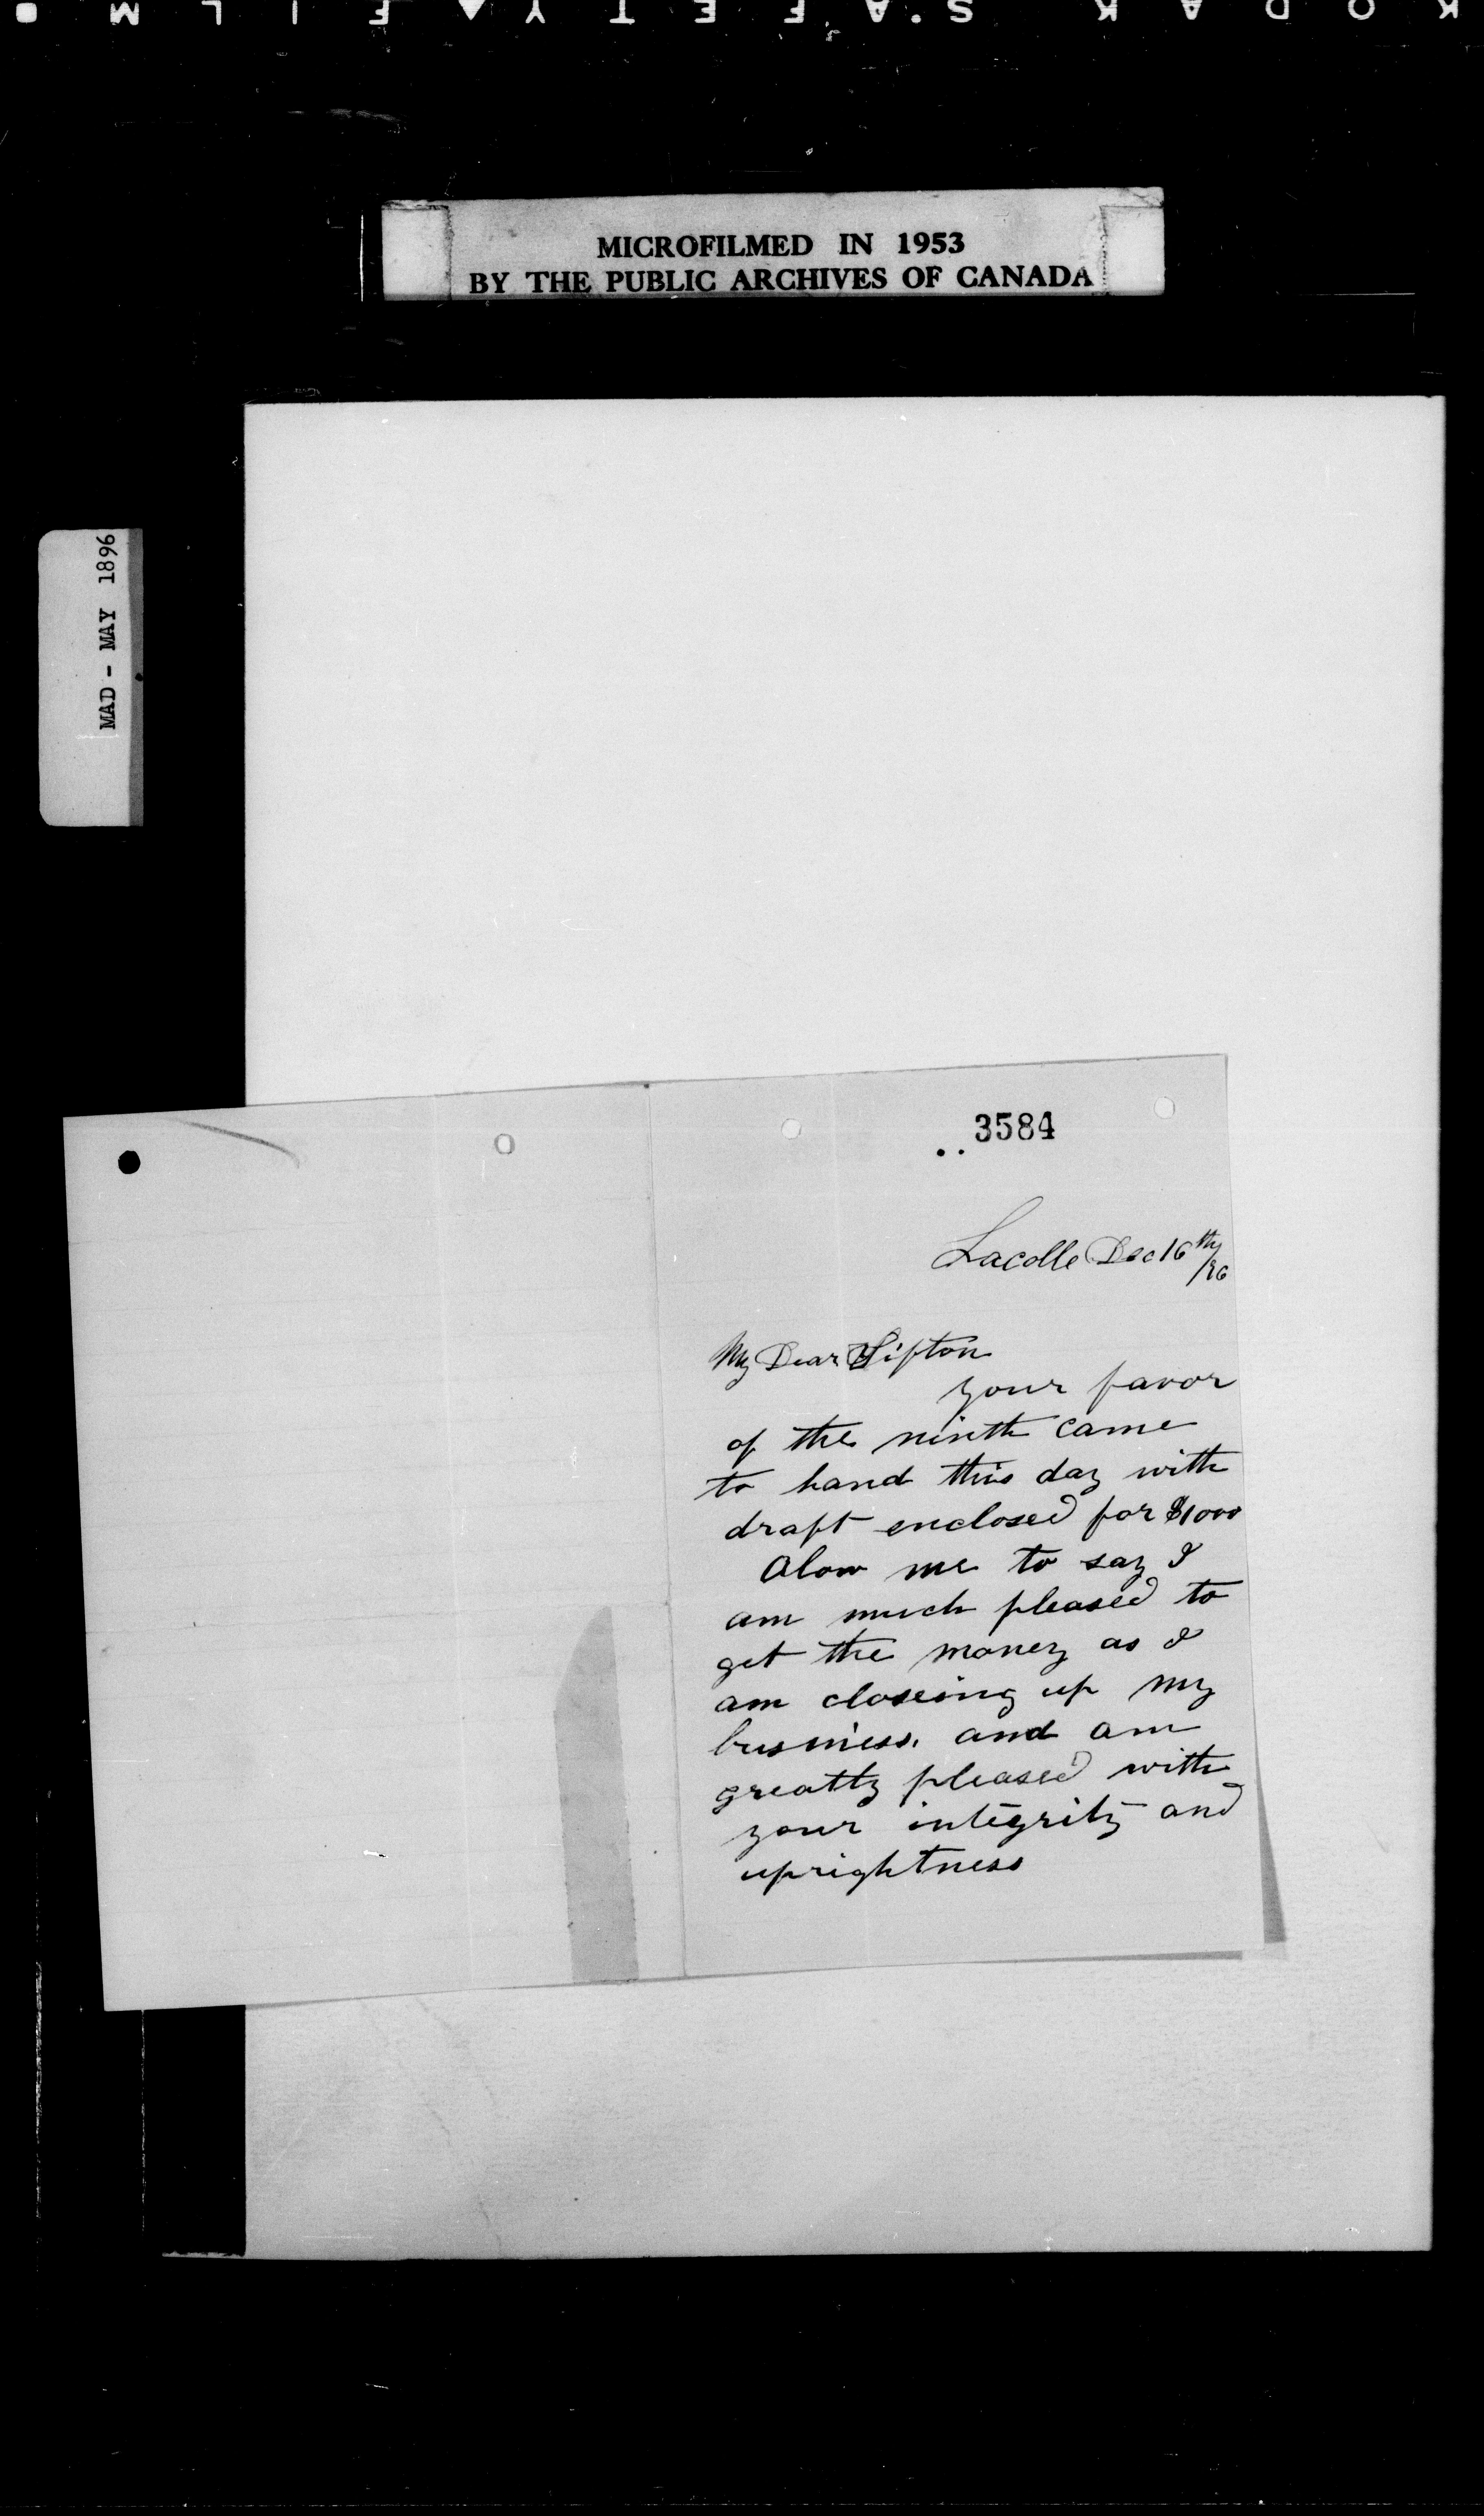 KODAK SAFETY FILM
MICROFILMED IN 1953
BY THE PUBLIC ARCHIVES OF CANADA
MAD - MAY 1896
3584
Lacolle Dec 16th/96
My Dear Sifton
your favor
of the ninth came
to hand this day with
draft enclosed for $1000
Alow me to say I
am much pleased to
get the money as I
am closeing up my
business. and am
greatly pleased with
your integrity and
uprightness